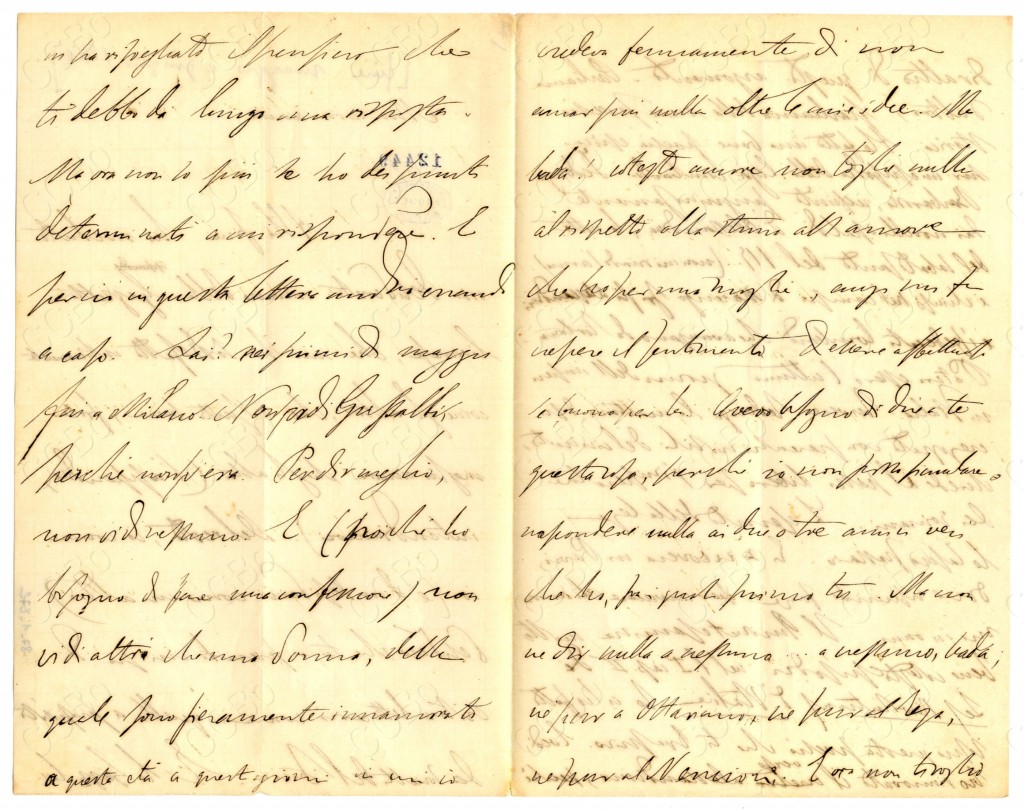 mi ha risvegliato il pensiero che
ti debbo da lungo una risposta.
Ma ora non so più se ho dei punti
determinati a cui rispondere. E
perciò in questa lettera andrò errando
a caso. Sai? nei primi di maggio
fui a Milano. Non vidi
perché non v'era. Per dir meglio,
non vidi nessuno. E (poiché ho
bisogno di fare una confessione) non
vidi altri che una donna, della
quale sono fieramente innamorato
a questa età a questi giorni in cui io
credeva fermamente di non
amar più nulla oltre le mie idee. Ma
bada! cotesto amore non toglie nulla
al rispetto alla stima all'amore
che ho per mia moglie, anzi mi fa
crescere il sentimento di bene
e buono per lei. Aveva bisogno di dire a te
questa cosa, perché io non posso
nascondere nulla ai due o tre amici veri
che ho, fra i quali primo tu. Ma non
ne dir nulla a nessuno... a nessuno, bada,
né pure a Ottaviano, né pure al
né pure al Nencioni. E ora non ti voglio
12448